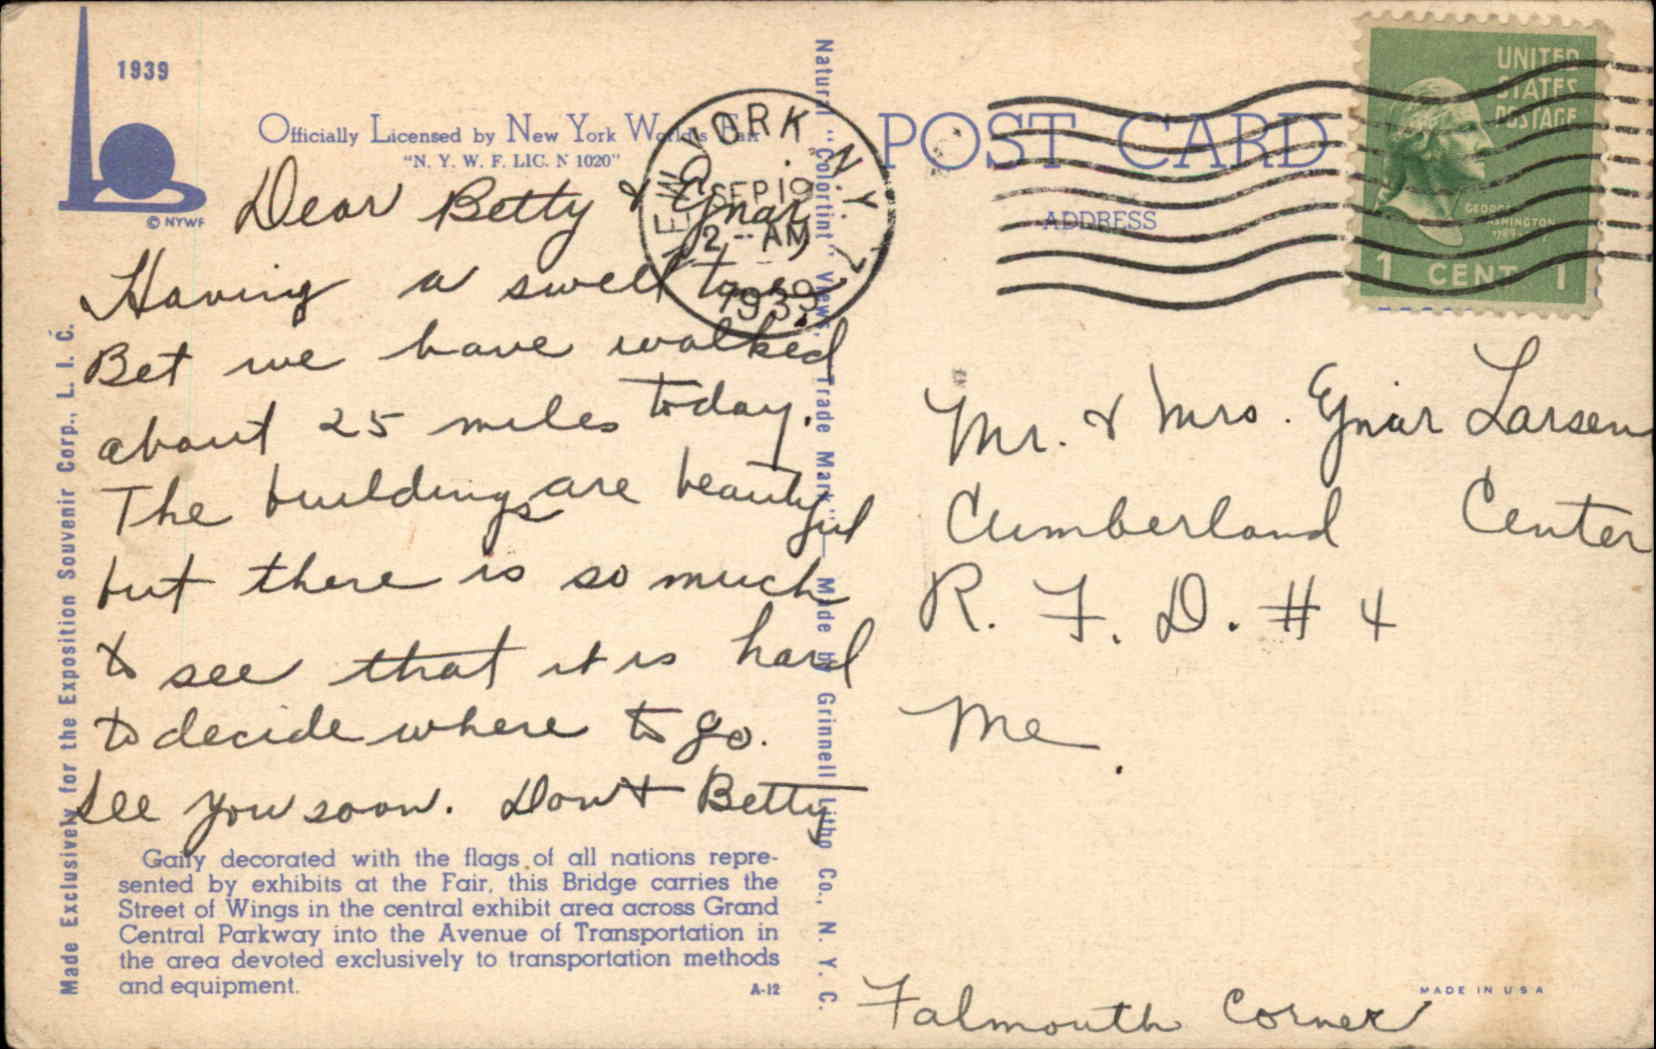 1939
© NYWF
Officially Licensed by New York World's Fair
"N. Y. W. F. LIC. N 1020"
Dear Betty & Ejnar,
Having a swell time
Bet we have walked
about 25 miles today.
The buildings are beautiful
but there is so much
to see that it is hard
to decide where to go.
See you soon. Don & Betty
Gaily decorated with the flags of all nations repre-
sented by exhibits at the Fair, this Bridge carries the
Street of Wings in the central exhibit area across Grand
Central Parkway into the Avenue of Transportation in
the area devoted exclusively to transportation methods
and equipment.
A-12
Made Exclusively for the Exposition Souvenir Corp., L. I. C.
Natural "Colortint" Views, Trade Mark — Made by Grinnell Litho Co., N. Y. C.
NEW YORK N.Y.
SEP 19
2 - AM
1939
POST CARD
ADDRESS
UNITED
STATES
POSTAGE
GEORGE
WASHINGTON
1 CENT 1
Mr. & Mrs. Ejnar Larsen
Cumberland Center
R. F. D. # 4
Me.
Falmouth Corner
MADE IN U S A